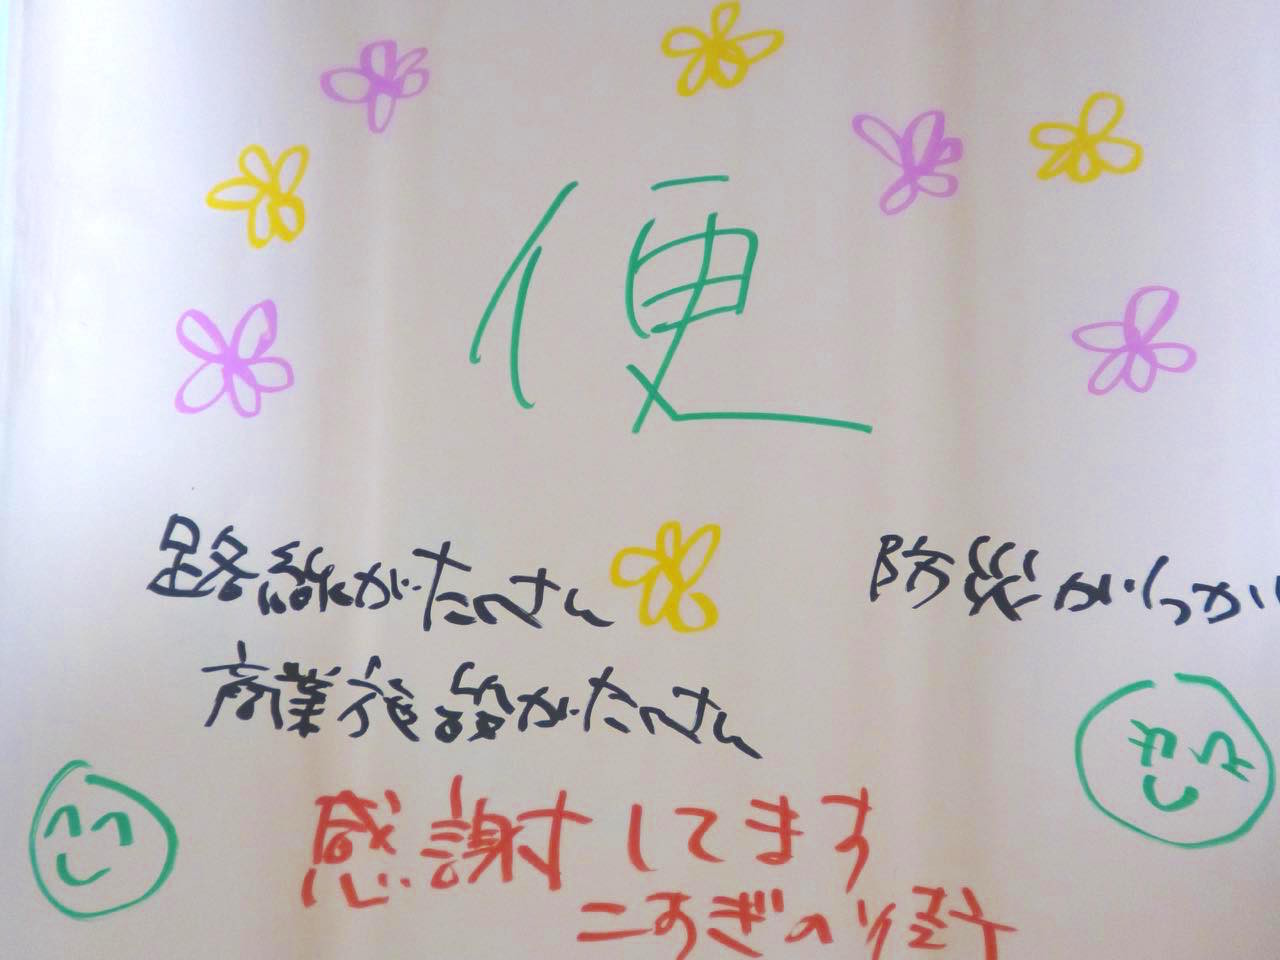 便
路線がたくさん
防災がしっかり
商業施設がたくさん
感謝してます
こすぎの